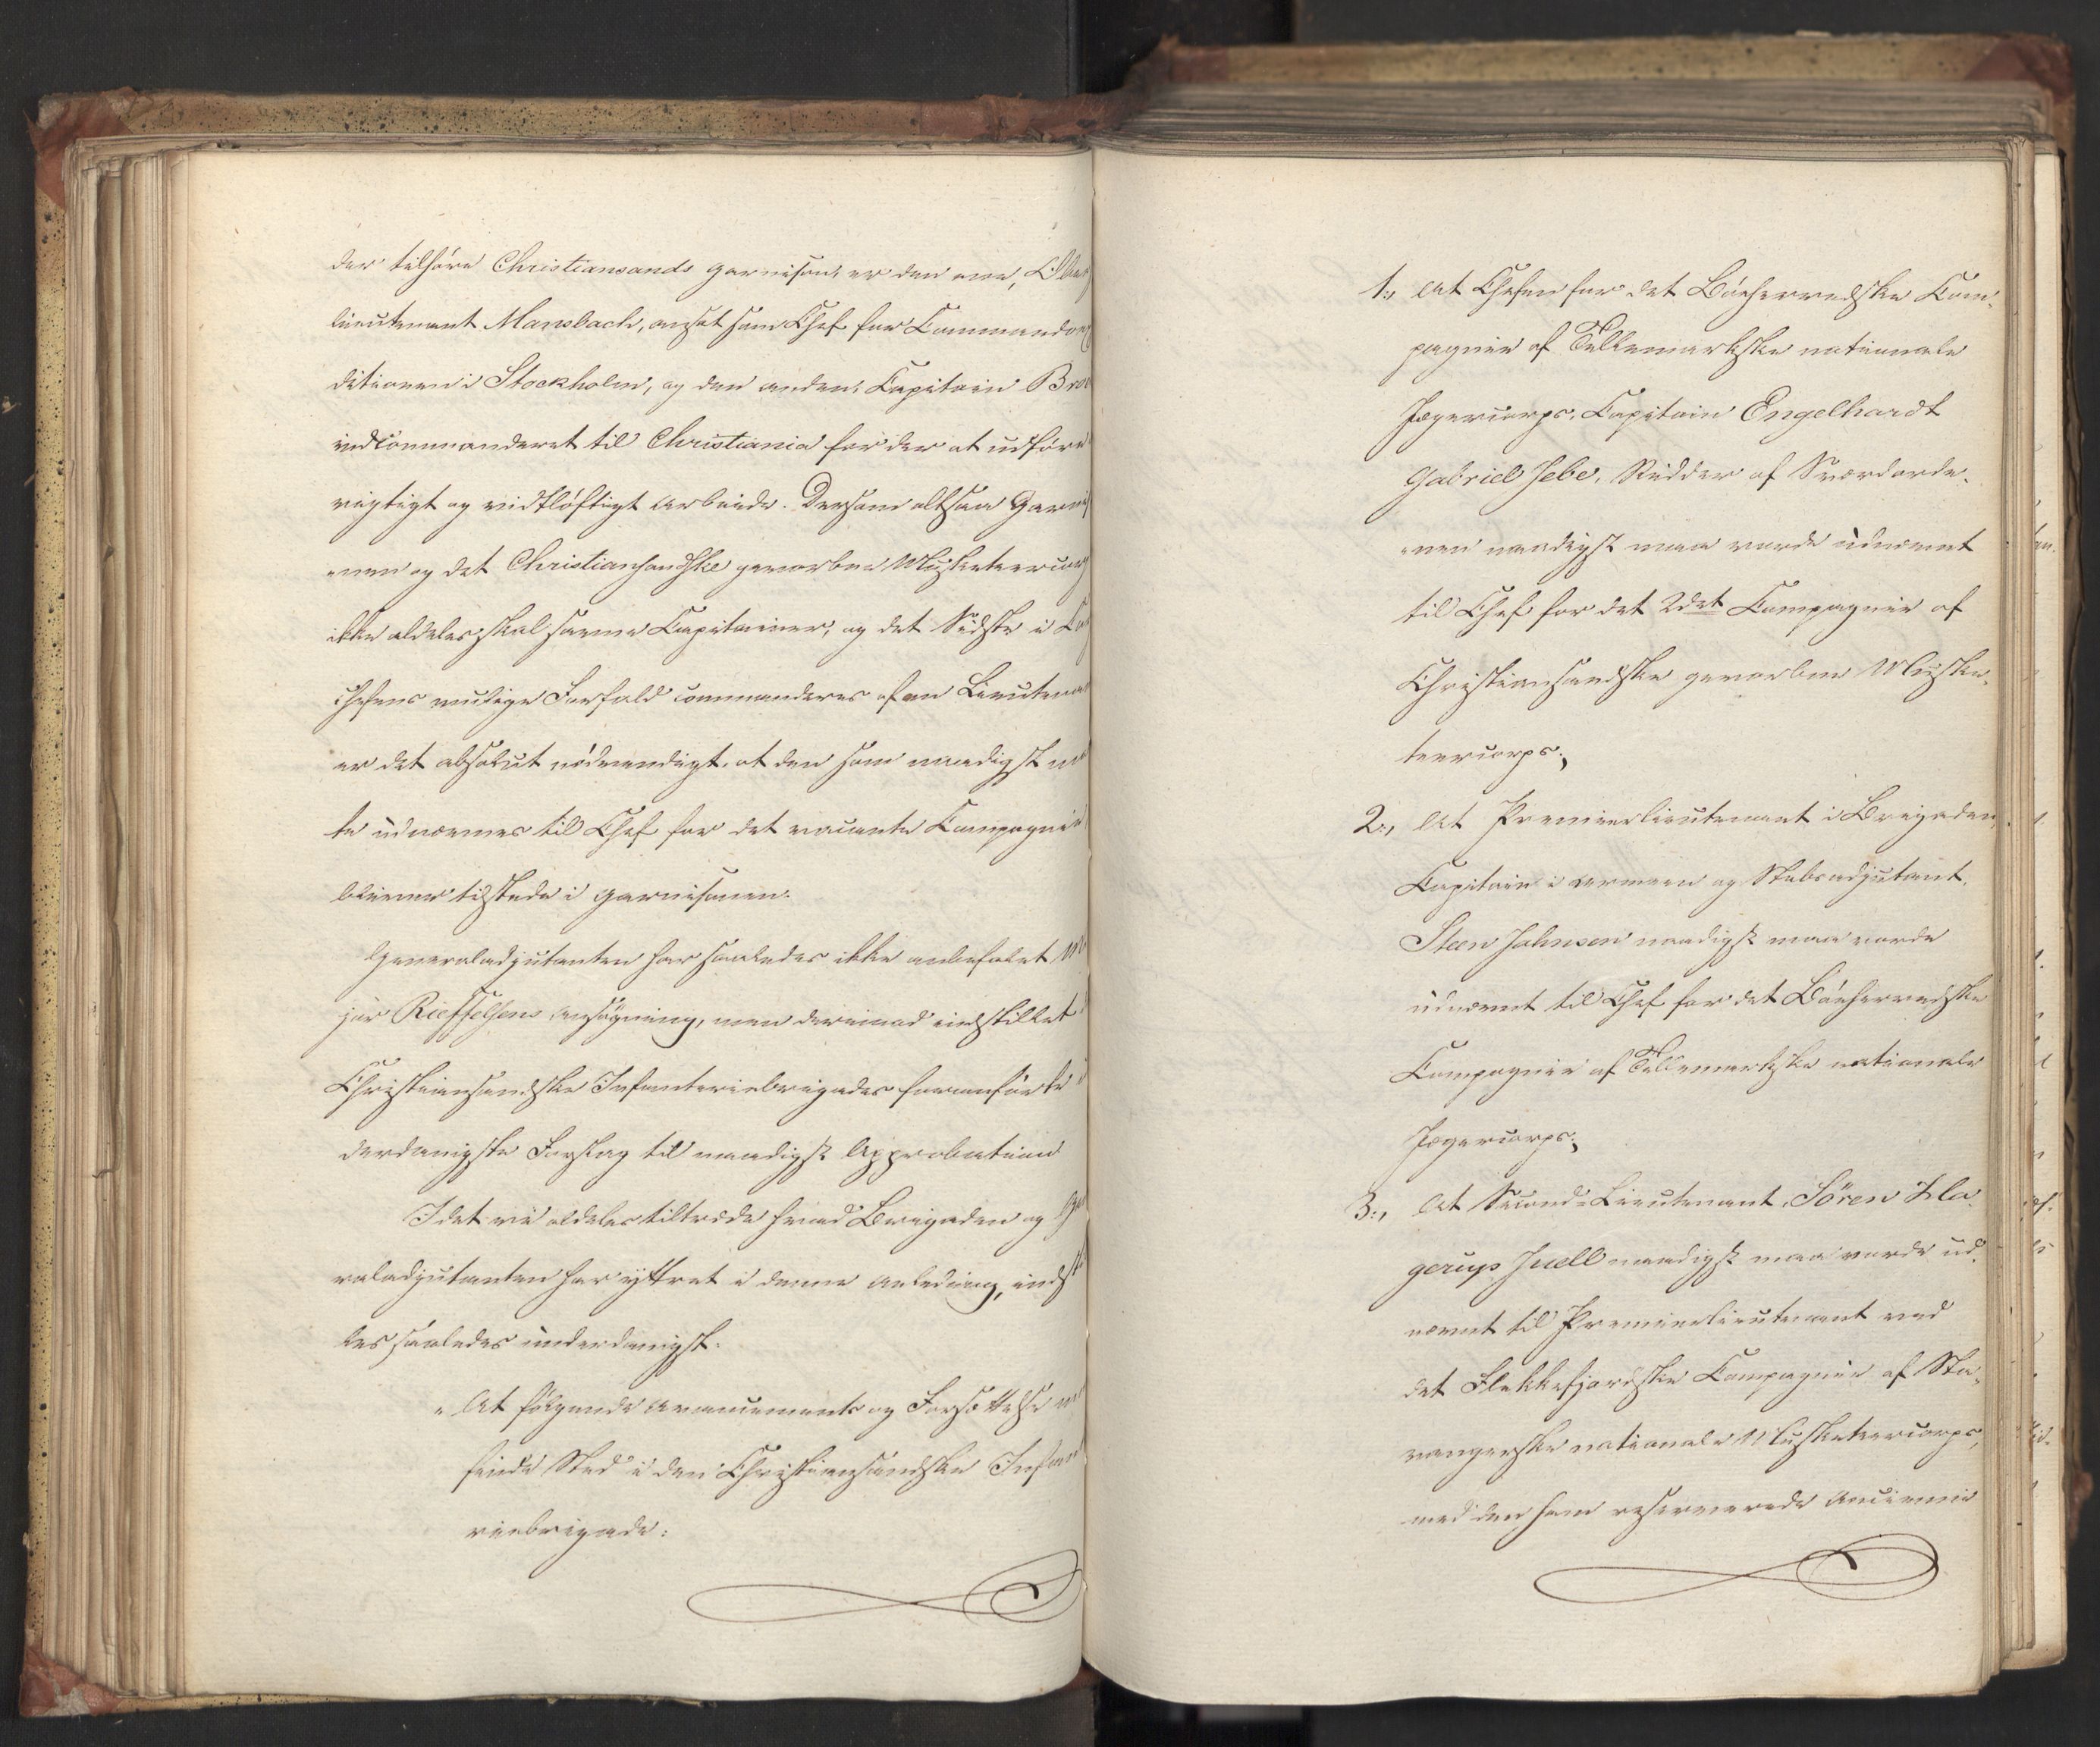 der tilhöre Christiansands Garnison, er den ene, Oberst
lieutenant Mansbach, ansat som Chef for Commandoex
ditionen i Stockholm, og den anden, Capitain
indcommanderet til Christiania for der at udföre
vigtigt og vidtlöftigt Arbeide. Dersom altsaa Garnis
onen og det Christiansandske gevorbne Musketeercorps
ikke aldeles skal savne Capitainer, og det Sidste i
chefens mulige Forfald commanderes af en Lieutenant
er det absolut nödvendigt, at den som naadigst
te udnævnes til Chef for det vacante Compagnie
bliver tilstede i Garnisonen.
Generaladjutanten har saaledes ikke anbefalet Ma
jor Rieffelsens Ansögning, men derimod indstillet
Christiansandske Infanteriebrigades foranförte
derdanigste Forslag til naadigst Approbation
Idet vi aldeles tiltræde hvad Brigaden og Gene
raladjutanten har yttret i denne Anledning, indstil
les saaledes underdanigst:
"At fölgende Avancements og Forsættelse
finde Sted i den Christiansandske Infante
riebrigade:
1., At Chefen for det Böeherredske Com-
pagnie af Tellemarkske nationale
Jægercorps, Capitain Engelhardt
Gabriel Jebe, Ridder af Sværdorde-
nen naadigst maa vorde udnævnt
til Chef for det 2det Compagnie af
Christiansandske gevorbne Muske-
teercorps;
2., At Premierlieutenant i Brigaden,
Capitain i Armeen og Stabsadjutant,
Steen Johnsen naadigst maa vorde
udnævnt til Chef for det Böeherredske
Compagnie af Tellemarkske nationale
Jægercorps;
3., At Second-Lieutenant Sören Ha-
gerup Juell naadigst maa vorde ud-
nævnt til Premierlieutenant ved
det Flekkefjordske Compagnie af Sta-
vangerske nationale Musketeercorps,
med den ham reserverede Ancienne